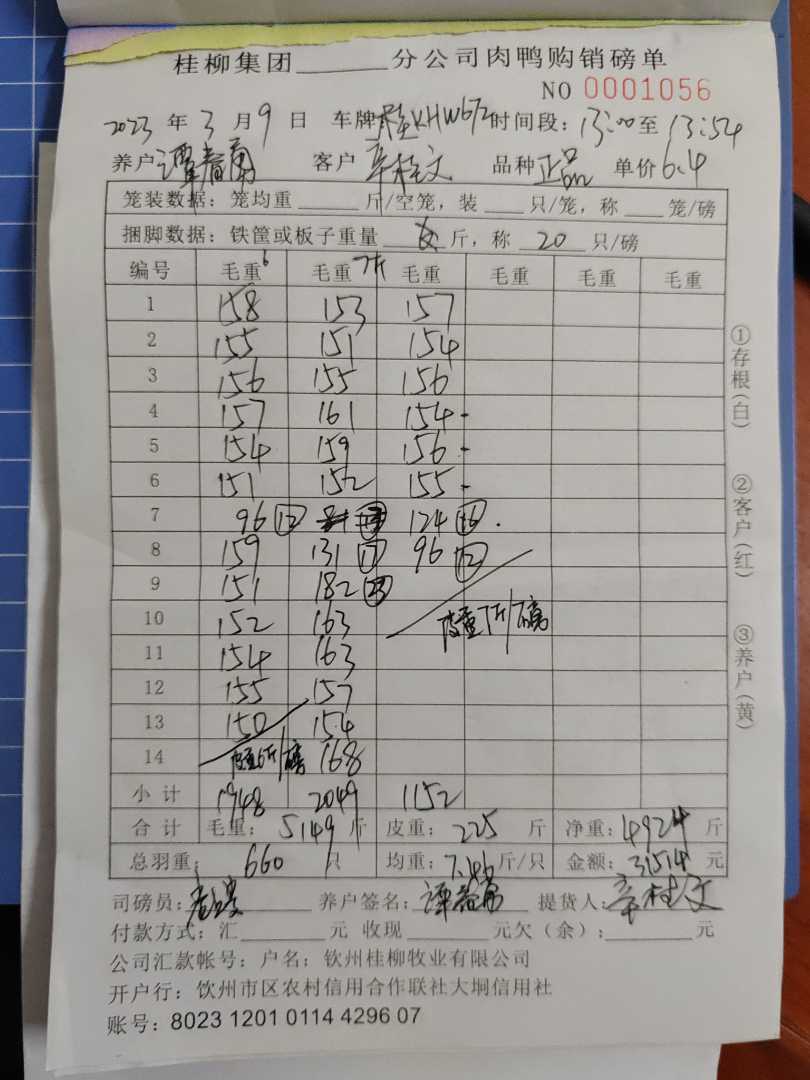 桂柳集团______分公司肉鸭购销磅单
NO 0001056
2023 年 3 月 9 日 车牌 桂KHW672 时间段: 13:00 至 13:54
养户 谭春南 客户 辛桂文 品种 正品 单价 6.4
笼装数据: 笼均重 ____ 斤/空笼, 装 ___ 只/笼, 称 ___ 笼/磅
捆脚数据: 铁筐或板子重量 ____ 斤, 称 20 只/磅
编号 毛重6 毛重7斤 毛重 毛重 毛重 毛重
1 158 153 157
2 155 151 154
3 156 155 156
4 157 161 154-
5 154 159 156-
6 151 152 155-
7 96 ⑫ 124 ⑯.
8 159 131 ⑰ 96 ⑫
9 151 182 ㉓
10 152 163 皮重7斤/磅
11 154 163
12 155 157
13 150 154
14 皮重6斤/磅 168
小计 1948 2049 1152
合计 毛重: 5149 斤 皮重: 225 斤 净重: 4924 斤
总羽重: 660 只 均重: 7.46 斤/只 金额: 31514 元
司磅员: 养户签名: 谭春南 提货人: 辛桂文
付款方式: 汇______元 收现______元欠(余):______元
公司汇款帐号: 户名: 钦州桂柳牧业有限公司
开户行: 饮州市区农村信用合作联社大垌信用社
账号: 8023 1201 0114 4296 07
①存根(白)
②客户(红)
③养户(黄)